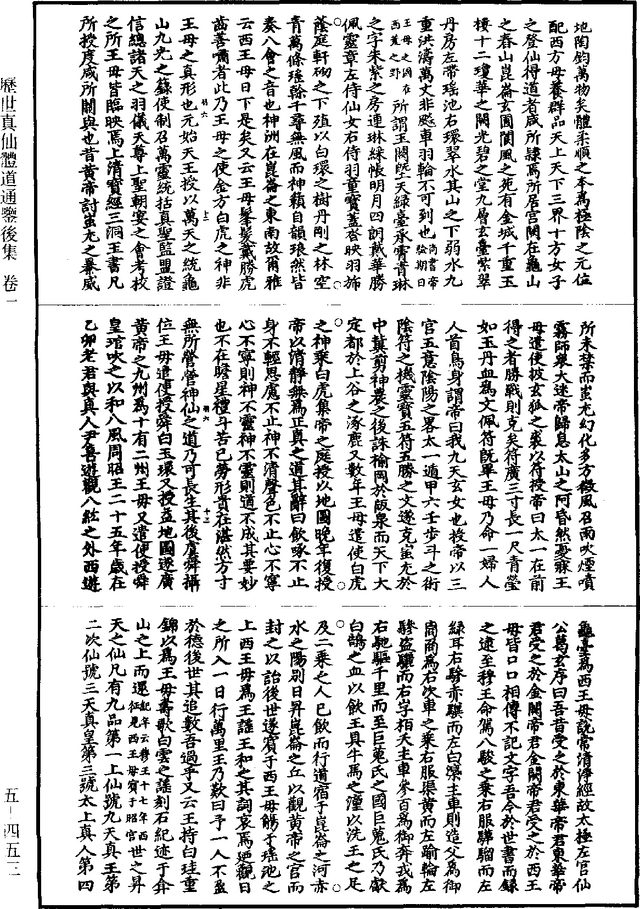 地陶鈞萬物矣體柔順之本爲極陰之元位
配西方母養群品天上天下三界十方女子
之登仙得道者咸所隸焉所居宫闕在龜山
之春山崑崙玄圃閬風之苑有金城千重玉
樓十二瓊華之闕光碧之堂九層玄臺紫翠
丹房左帶瑶池右環翠水其山之下弱水九
重洪濤萬丈非飈車羽輪不可到也
所謂玉闕塈天緑臺承霄青琳
之宇朱紫之房連琳綵帳明月四朗戴華勝
佩靈章左侍仙女右侍羽童寶蓋沓映羽旆
蔭庭軒砌之下殖以白環之樹丹剛之林空
青萬條瑶榦千尋無風而神籟自韻琅然皆
奏八會之音也神洲在崑崙之東南故爾雅
云西王母日下是矣又云王母蓬髮戴勝虎
齒善嘯者此乃王母之使金方白虎之神非
王母之真形也元始天王授以萬天之統龜
山九光之籙使制召萬靈統括真聖監盟證
信總諸天之羽儀天尊上聖朝宴之會考校
之所王母皆臨映焉上清寶經三洞玉書凡
所授度咸所關與也昔黄帝討蚩尤之暴威
所未禁而蚩尤幻化多方徵風召雨吹煙噴
霧師衆大迷帝歸息太山之阿昏然憂寐王
母遣使披玄狐之裘以符授帝曰太一在前
得之者勝戰則克矣符廣三寸長一尺青瑩
如玉丹血爲文佩符既畢王母乃命一婦人
人首鳥身謂帝曰我九天玄女也授帝以三
宫五意陰陽之畧太一遁甲六壬步斗之術
陰符之機靈寶五符五勝之文遂克蚩尤於
中冀剪神農之後誅榆岡於阪泉而天下大
定都於上谷之涿鹿又數年王母遣使白虎
之神乘白虎集帝之庭授以地圖晚年復授
帝以清静無爲正真之道其辭曰飲啄不止
身不輕思慮不止神不清聲色不止心不寧
心不寧則神不靈神不靈則道不成其要妙
也不在瞻星禮斗苦已勞形貴在湛然方寸
無所營營神仙之道乃可長生其後虞舜攝
位王母遣使授舜白玉環又授益地圖遂廣
黄帝之九州爲十有二州王母又遣使授舜
皇琯吹之以和八風周昭王二十五年歲在
乙卯老君與真人尹喜遊觀八紘之外西遊
龜臺爲西王母說常清浄經故太極左宫仙
公葛玄序曰吾昔受之於東華帝君東華帝
君受之於金闕帝君金闕帝君受之於西王
母皆口口相傳不記文字吾今於世書而録
之逮至穆王命駕八駿之乘右服驊騮而左
緑耳右驂赤驥而左白𣚴主車則造父爲御
𠹛𠹛爲右次車之乘右服渠黄而左踰輪左
驂盗驪而右𡵾柏夭主車參百爲御奔戎爲
右馳驅千里而至巨蒐氏之國巨蒐氏乃獻
白鵠之血以飲王具牛馬之湩以洗王之足
及二乘之人已飲而行遂宿于崑崙之河赤
水之陽别日昇崑崙之丘以觀黄帝之宫而
封之以詒後世遂賓于西王母觴于瑶池之
上西王母爲王謡王和之其詞哀焉廼觀日
之所入一日行萬里王乃歎曰予一人不盈
於德後世其追數吾過乎又云王持白珪重
錦以爲王母壽歌白雲之謡刻石紀迹于弇
山之上而還
世之昇
天之仙凡有九品第一上仙號九天真王第
二次仙號三天真皇第三號太上真人第四
歷世真仙體道通鑒後集 卷一
五-四五三